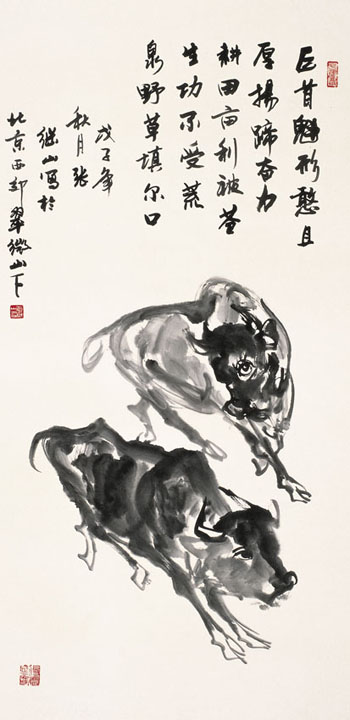 巨首魁形憨且
厚揚蹄奋力
耕田亩利被苍
生功不受荒
泉野草填尔口
戊子年
秋月张
继山写於
北京西郊翠微山下